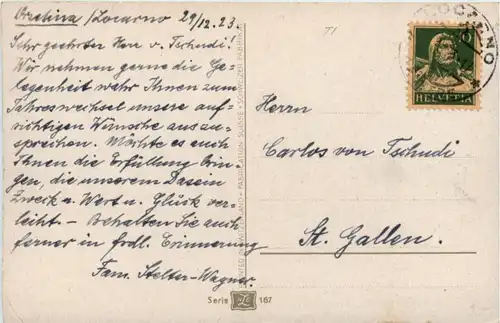 Orselina /Locarno 29/12.23.
Sehr geehrter Herr v. Tschudi!
Wir nehmen gerne die Ge-
legenheit wahr Ihnen zum
Jahreswechsel unsere auf-
richtigen Wünsche auszu-
sprechen. Möchte es auch
Ihnen die Erfüllung brin-
gen, die unserem Dasein
Zweck u. Wert u. Glück ver-
leiht – Behalten Sie auch
ferner in frdl. Erinnerung
Fam. Stelter-Wagner.
HELVETIA
Herrn
Carlos von Tschudi
St. Gallen.
Serie 167